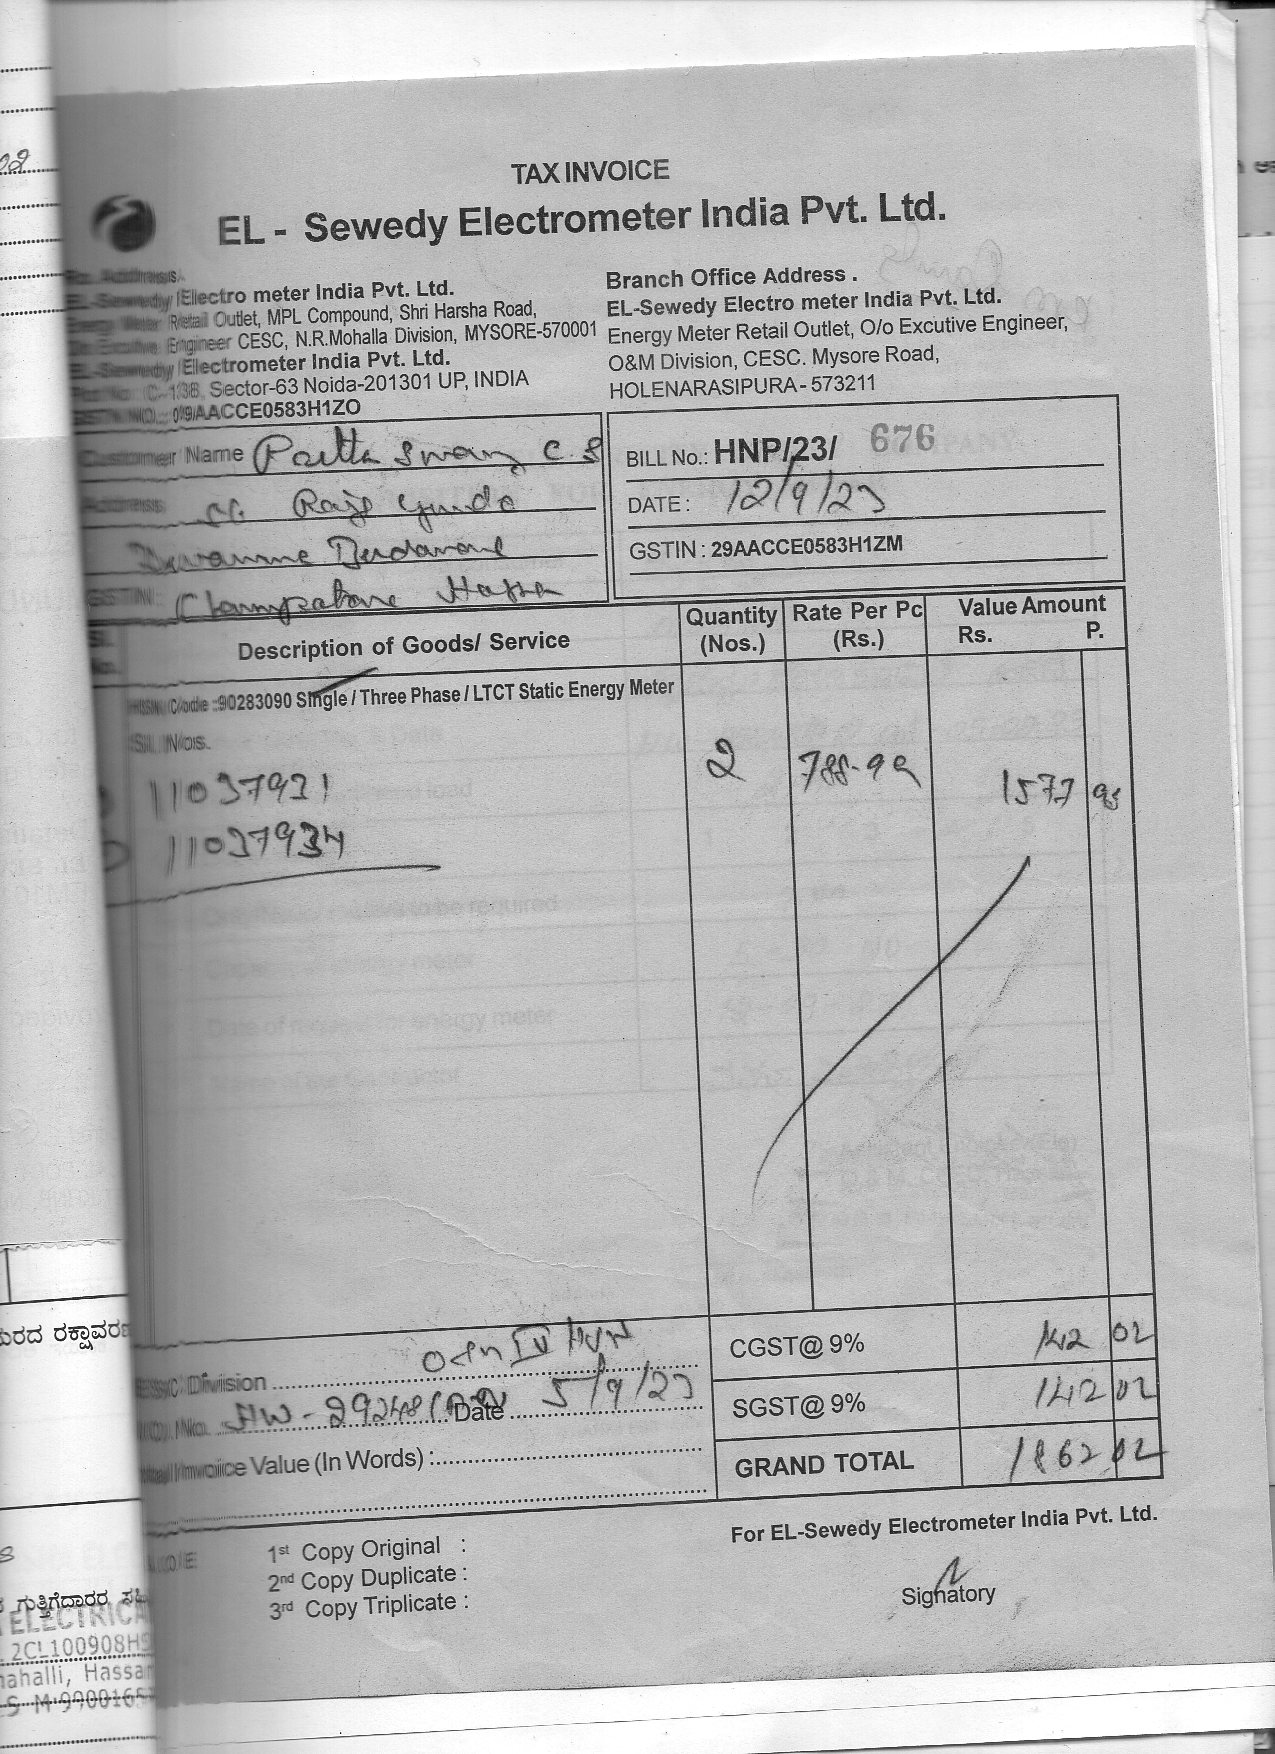 TAX INVOICE
EL - Sewedy Electrometer India Pvt. Ltd.
Address
EL-Sewedy Electro meter India Pvt. Ltd.
Energy Meter Retail Outlet, MPL Compound, Shri Harsha Road,
Engineer CESC, N.R.Mohalla Division, MYSORE-570001
EL-Sewedy Electrometer India Pvt. Ltd.
C-138, Sector-63 Noida-201301 UP, INDIA
GSTN NO.: 09AACCE0583H1ZO
Branch Office Address .
EL-Sewedy Electro meter India Pvt. Ltd.
Energy Meter Retail Outlet, O/o Excutive Engineer,
O&M Division, CESC. Mysore Road,
HOLENARASIPURA - 573211
Customer Name Swamy C.S
Address
GSTIN:
BILL No.: HNP/23/ 676
DATE : 12/9/23
GSTIN : 29AACCE0583H1ZM
Sl. No. Description of Goods/ Service Quantity (Nos.) Rate Per Pc (Rs.) Value Amount Rs. P.
HSN Code :90283090 Single / Three Phase / LTCT Static Energy Meter
Sl. Nos.
11037931 2 788-99 1577 98
11037934
CGST@ 9% 142 02
Division
SGST@ 9% 142 02
No. Date 5/9/23
Invoice Value (In Words) :
GRAND TOTAL 1862 02
NOTE
1st Copy Original :
2nd Copy Duplicate :
3rd Copy Triplicate :
For EL-Sewedy Electrometer India Pvt. Ltd.
Signatory
ಗುತ್ತಿಗೆದಾರರ
ELECTRICA
2CL100908HS
Hassan